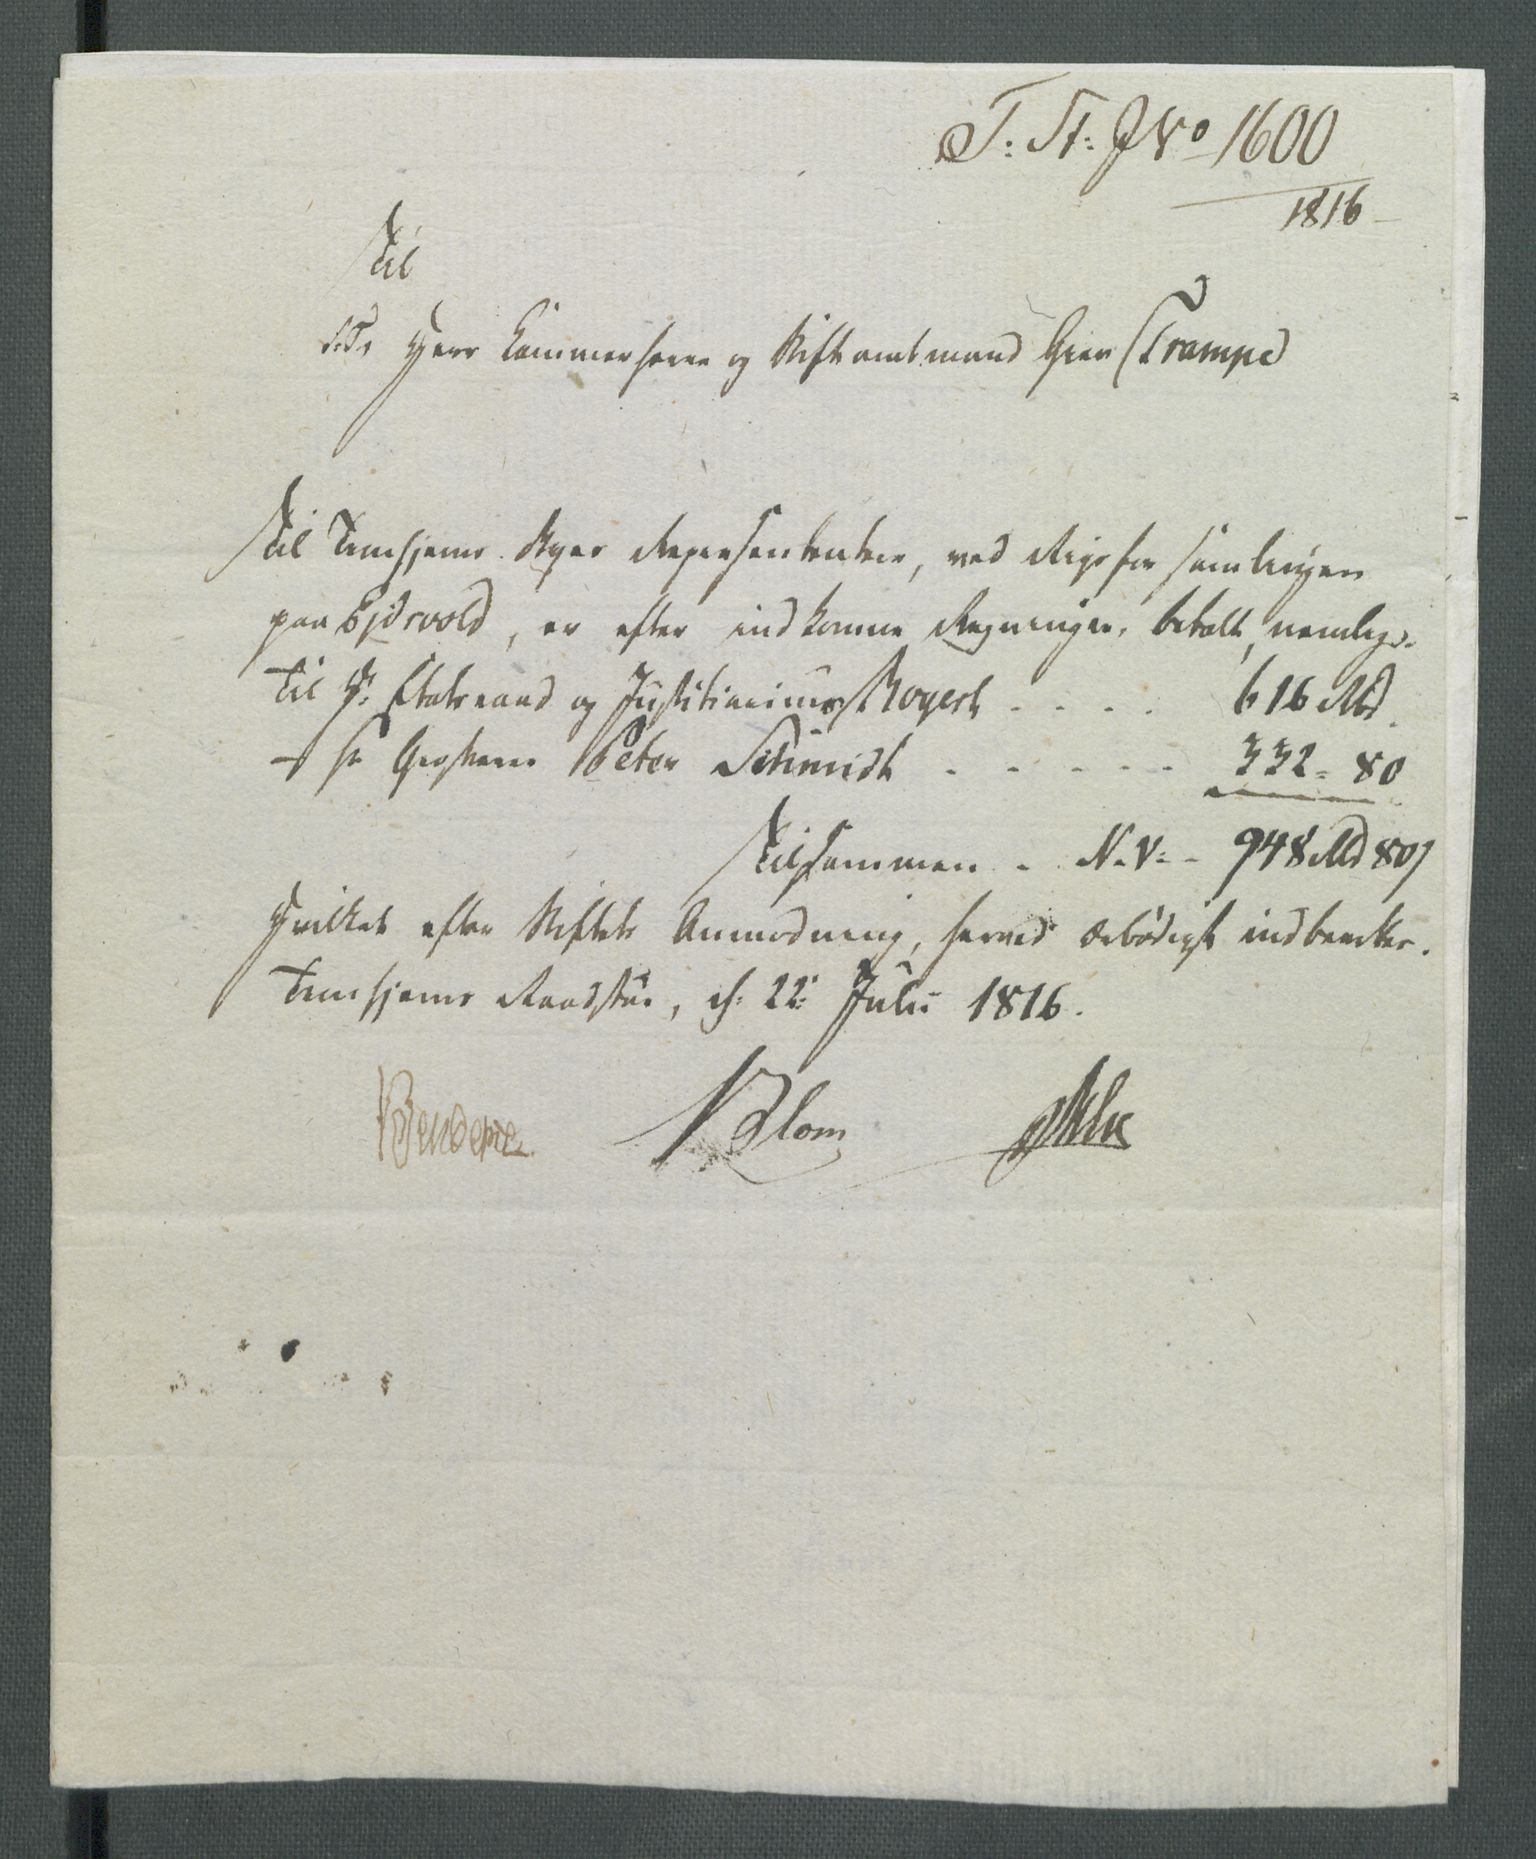 T: St: J No 1600
1816
Til
S. T. Herr Kammerherre og Stiftamtmand Grev Trampe
Til Tronhjems Byes Repræsentantere, ved Rigsforsamlingen
paa Eidsvold, er efter indkomne Regninger, betalt, nemlig:
Til Hr. Etatsraad og Justitiarius Rogert .... 616 Rbd.
— Hr. Grosserer Peter Schmidt ..... 332 = 80
Tilsammen . N.V. - 948 Rbd 80 s
Hvilket efter Stiftets Anmodning, herved ærbødigst indberettes.
Tronhjems Raadstue, d: 22 Julii 1816.
Blom